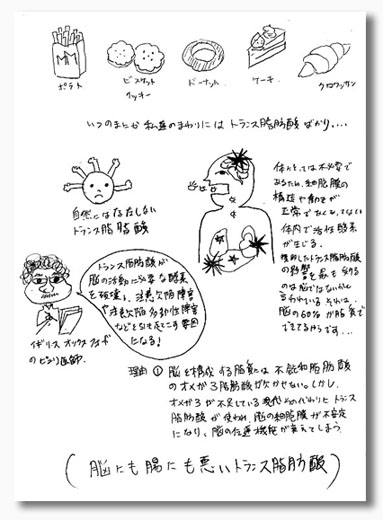 ポテト
ビスケット
クッキー
ドーナット
ケーキ
クロワッサン
いつのまにか私達のまわりにはトランス脂肪酸ばかり....
自然には存在しない
トランス脂肪酸
体にとっては不必要で
あるため、細胞膜の
構造や働きが
正常でなくなって
体内で活性酵素
が生じる。
トランス脂肪酸
の影響を最も受ける
のは脳ではないかと
言われている それは、
脳の60%が脂質で
できてるからです...
トランス脂肪酸が
脳の活動に必要な酵素
を破壊し、注意欠陥障害
や注意欠陥多動性障害
などを引きおこす要因
になる!
イギリス オックスフォード
のとなり医師.
理由① 脳を構成する脂質には不飽和脂肪酸
のオメガ3脂肪酸が欠かせない。しかし、
オメガ3が不足している現代 そのかわりにトランス
脂肪酸が使われ、脳の細胞膜が不安定
になり、脳の伝達機能が衰えてしまう
(脳にも腸にも悪いトランス脂肪酸)